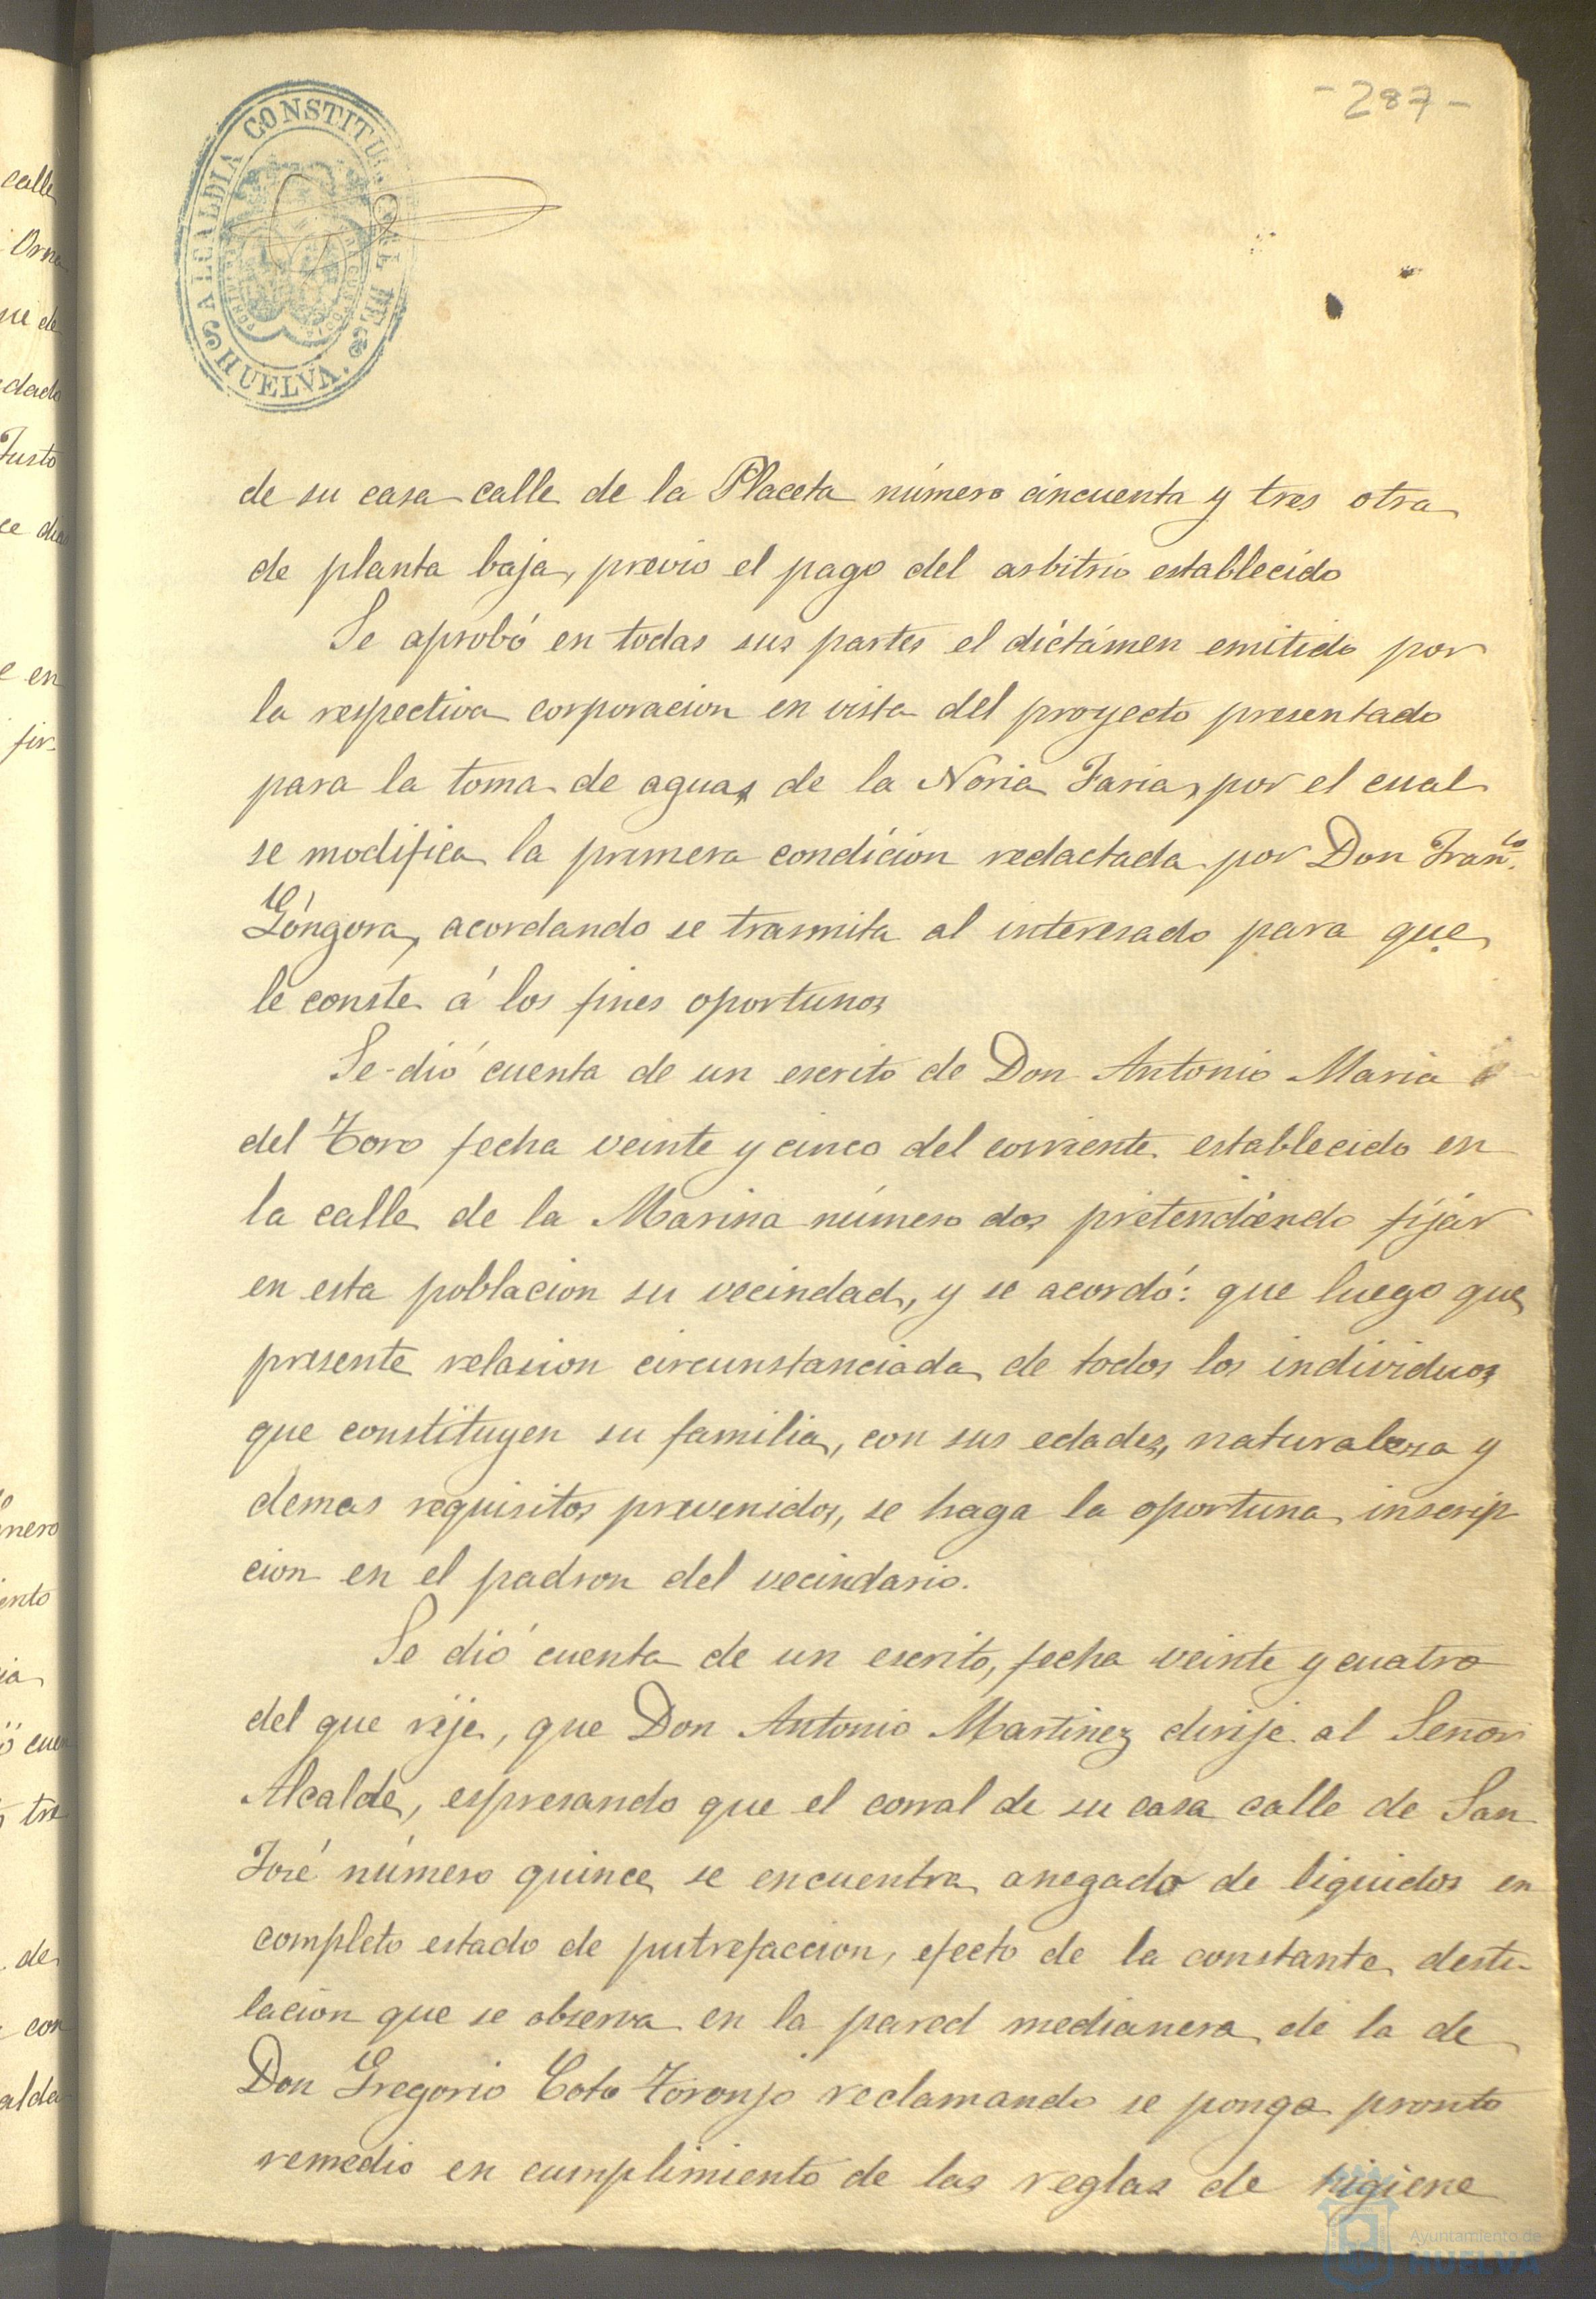 -287-
ALCALDIA CONSTITUCIONAL DE
HUELVA.
de su casa calle de la Placeta número cincuenta y tres otra
de planta baja, previo el pago del arbitrio establecido
Se aprobó en todas sus partes el dictámen emitido por
la respectiva corporacion en vista del proyecto presentado
para la toma de aguas de la Noria Faria, por el cual
se modifica la primera condicion redactada por Don Fran.co
Góngora, acordando se trasmita al interesado para que
le conste á los fines oportunos
Se dió cuenta de un escrito de Don Antonio Maria
del Toro fecha veinte y cinco del corriente establecido en
la calle de la Marina número dos pretendiendo fijar
en esta poblacion su vecindad, y se acordó: que luego que
presente relacion circunstanciada de todos los individuos
que constituyen su familia, con sus edades, naturaleza y
demas requisitos prevenidos, se haga la oportuna inscrip
cion en el padron del vecindario.
Se dió cuenta de un escrito, fecha veinte y cuatro
del que rije, que Don Antonio Martinez dirije al Señor
Alcalde, espresando que el corral de su casa calle de San
José número quince se encuentra anegado de liquidos en
completo estado de putrefaccion, efecto de la constante desti-
lacion que se observa en la pared medianera de la de
Don Gregorio Coto Toronjo reclamando se ponga pronto
remedio en cumplimiento de las reglas de higiene
Ayuntamiento de
HUELVA